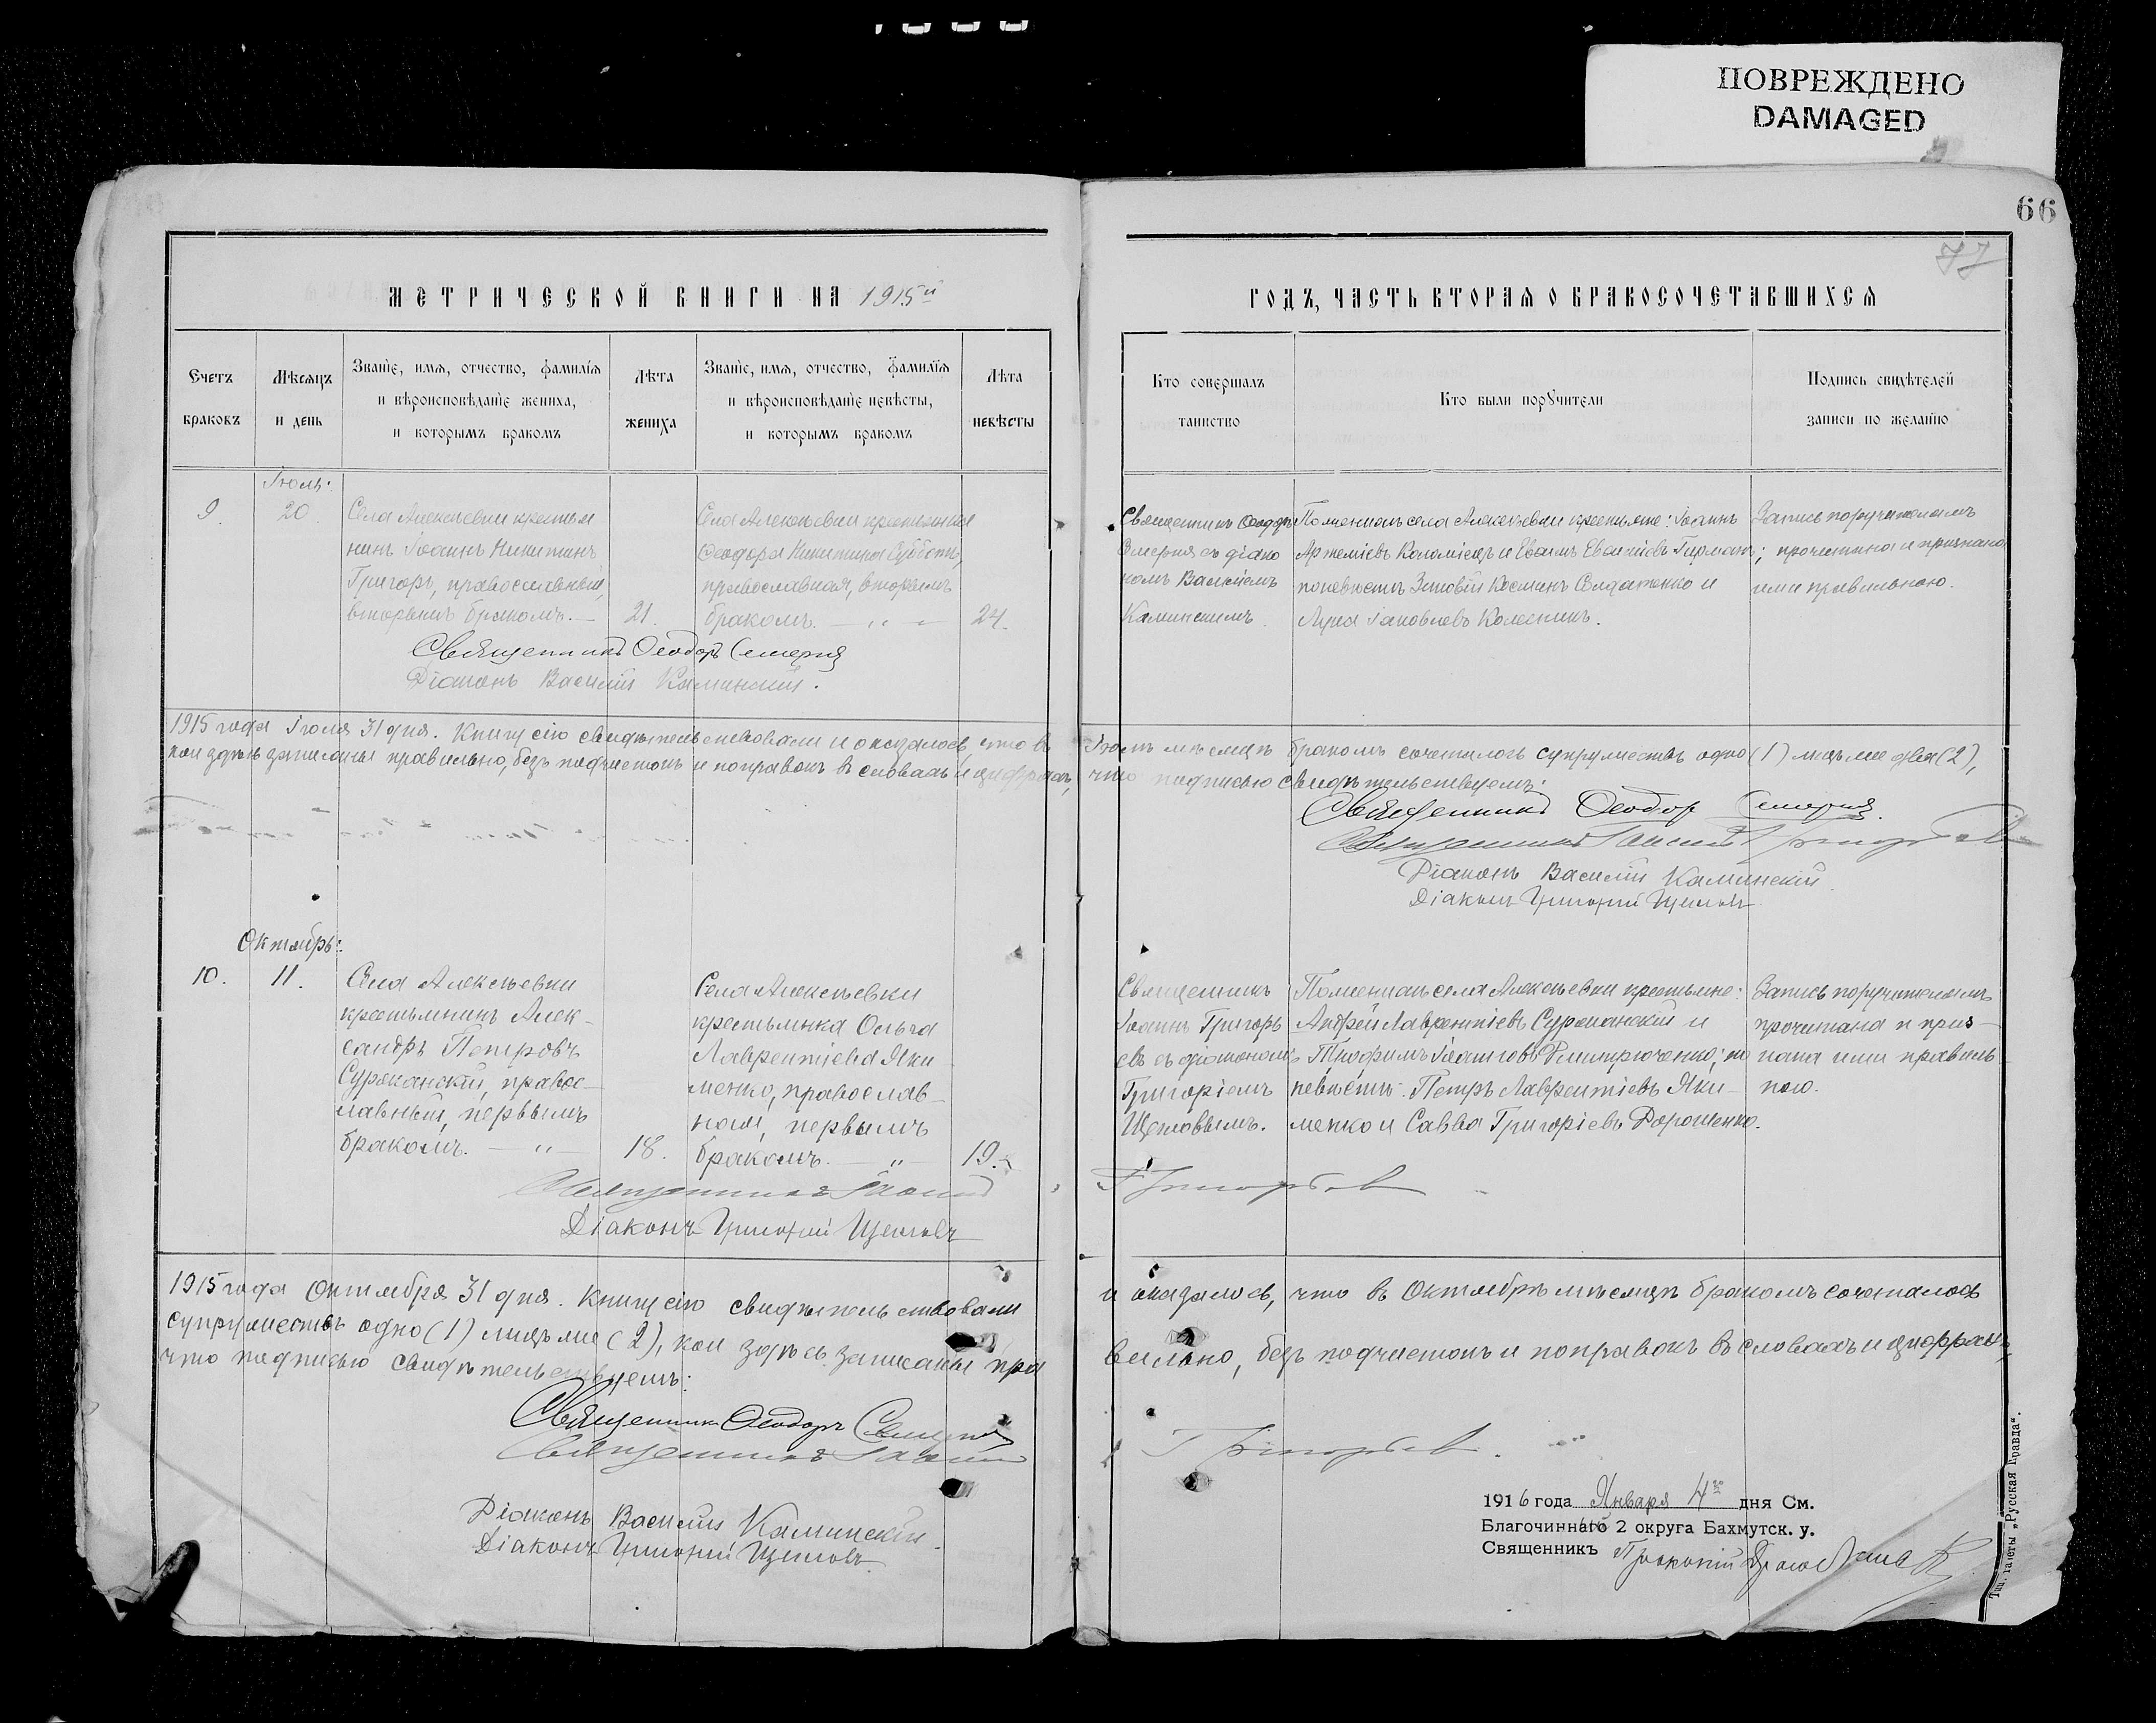 ПОВРЕЖДЕНО
DAMAGED
66
77
МЕТРИЧЕСКОЙ КНИГИ НА 1915й
ГОДЪ, ЧАСТЬ ВТОРАЯ О БРАКОСОЧЕТАВШИХСЯ
Счетъ
браковъ
Мѣсяцъ
и день
Званіе, имя, отчество, фамилія
и вѣроисповѣданіе жениха,
и которымъ бракомъ
Лѣта
жениха
Званіе, имя, отчество, фамилія
и вѣроисповѣданіе невѣсты,
и которымъ бракомъ
Лѣта
невѣсты
Кто совершалъ
таинство
Кто были поручители
Подпись свидѣтелей
записи по желанію
Іюль:
9.
20.
Села Алексѣевки крестья
нинъ Іоаннъ Никитинъ
Григоръ, православный,
вторымъ бракомъ. —
21.
Села Алексѣевки крестьянка
Ѳеодора Никитина Субботъ,
православная, вторымъ
бракомъ. — „ —
24.
Священникъ Ѳеодоръ
Семерня съ діако
номъ Василіемъ
Каминскимъ.
По женихѣ села Алексѣевки крестьяне: Іоаннъ
Артеміевъ Коломіецъ и Евѳимъ Евѳиміевъ Гирманъ;
по невѣстѣ Зиновій Косминъ Солдатенко и
Лука Іаковлевъ Колесникъ.
Запись поручителямъ
прочитана и признана
ими правильною.
Священникъ Ѳеодоръ Семерня
Діаконъ Василій Каминскій.
1915 года Іюля 31 дня. Книгу сію свидѣтельствовали и оказалось, что въ Іюлѣ мѣсяцѣ бракомъ сочеталось супружествъ одно (1) лицъ же два (2),
кои здѣсь записаны правильно, безъ подчистокъ и поправокъ въ словахъ и цифрахъ, что подписью свидѣтельствуемъ:
Священникъ Ѳеодор Семерня.
Священникъ Іоаннъ Григорьев
Діаконъ Василій Каминскій.
Діаконъ Григорій Щеловъ
Октябрь:
10.
11.
Села Алексѣевки
крестьянинъ Алек-
сандръ Петровъ
Суржанскій, правос-
лавный, первымъ
бракомъ. — „ —
18.
Села Алексѣевки
крестьянка Ольга
Лаврентіева Яки
менко, православ-
ная, первымъ
бракомъ. — „ —
19.
Священникъ
Іоаннъ Григорь
евъ съ діакономъ
Григоріемъ
Щеловымъ.
По женихѣ села Алексѣевки крестьяне:
Андрей Лаврентіевъ Суржанскій и
Трофимъ Іоанновъ Дмитрюченко; по
невѣстѣ: Петръ Лаврентіевъ Яки-
менко и Савва Григоріевъ Дорошенко.
Запись поручителямъ
прочитана и приз-
нана ими правиль-
ною.
Священникъ Іоаннъ Григорьев
Діаконъ Григорій Щеловъ
1915 года Октября 31 дня. Книгу сію свидѣтельствовали и оказалось, что въ Октябрѣ мѣсяцѣ бракомъ сочеталось
супружествъ одно (1) лицъ же (2), кои здѣсь записаны пра вильно, безъ подчистокъ и поправокъ въ словахъ и цифрахъ,
что подписью свидѣтельствуемъ:
Священникъ Ѳеодоръ Семерня
Священникъ Іоаннъ Григорьев.
Діаконъ Василій Каминскій.
Діаконъ Григорій Щеловъ
1916 года Января 4го дня См.
Благочинный 2 округа Бахмутск. у.
Священникъ Прокопій
Тип. газеты „Русская Правда“.